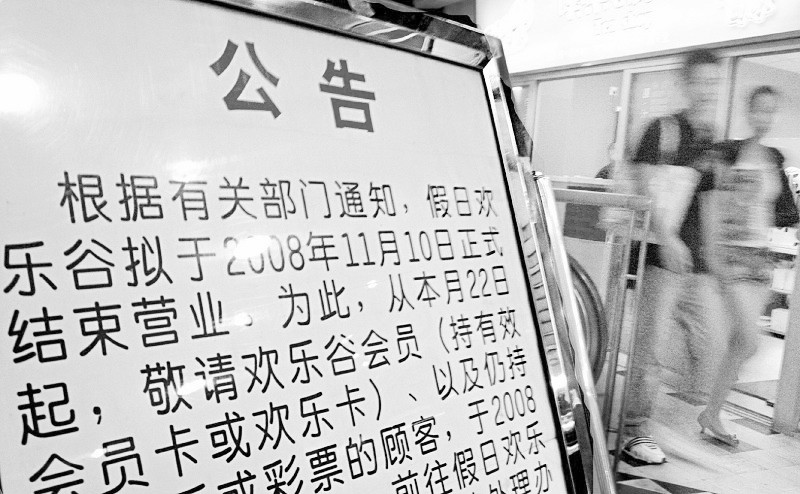 公告
根据有关部门通知，假日欢
乐谷拟于2008年11月10日正式
结束营业。为此，从本月22日
起，敬请欢乐谷会员（持有效
会员卡或欢乐卡）、以及仍持
或彩票的顾客，于2008
前往假日欢乐
处理办